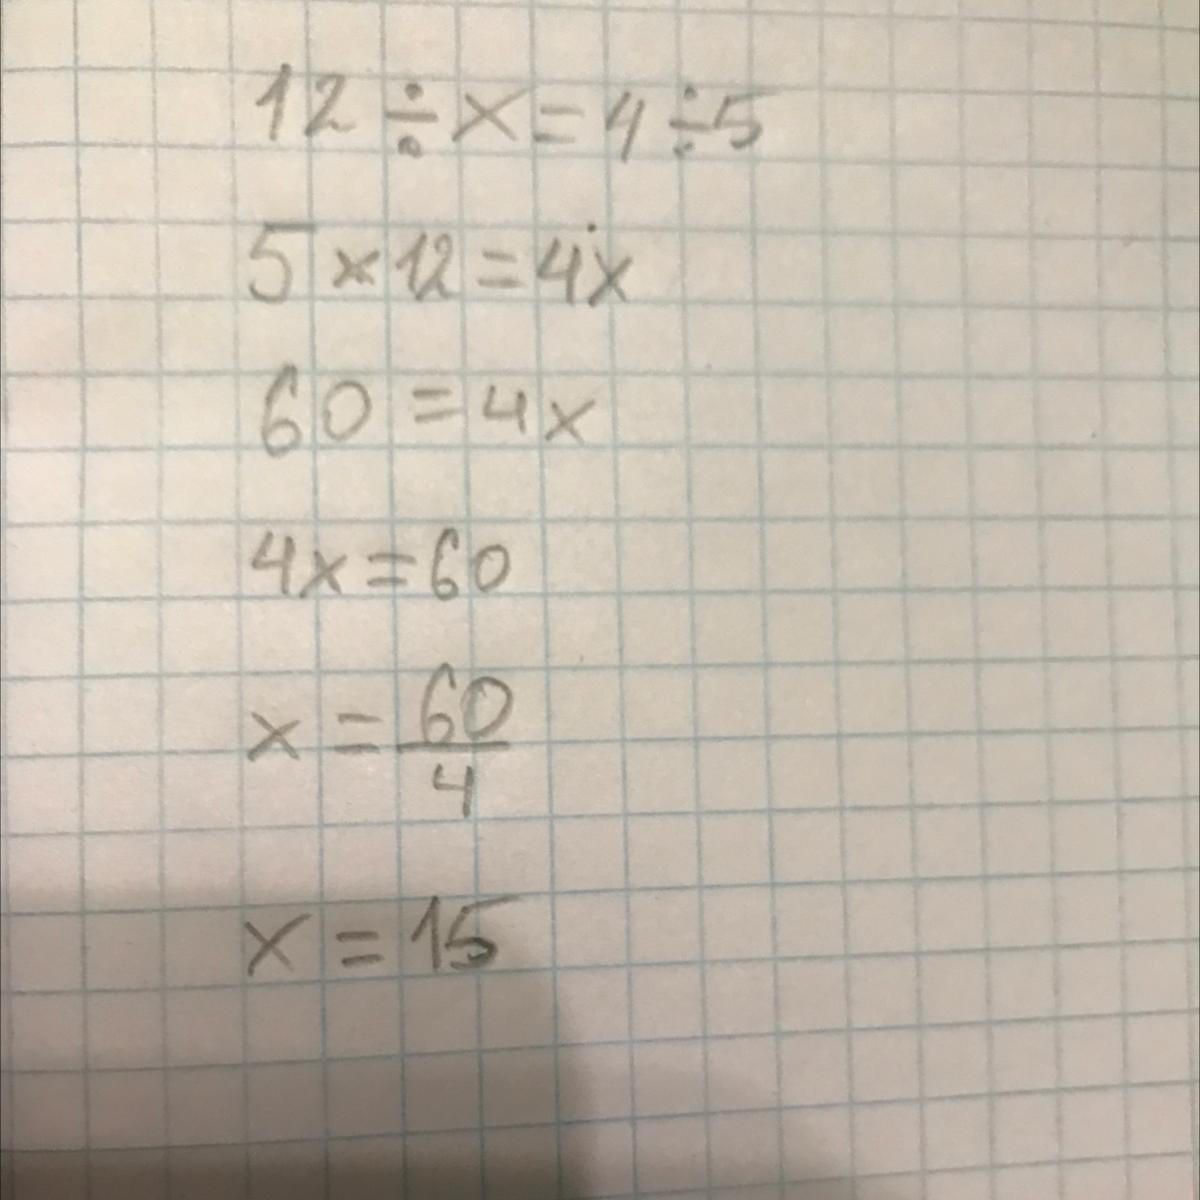 12 ÷ x = 4 ÷ 5
5 × 12 = 4x
60 = 4x
4x = 60
x = 60/4
x = 15